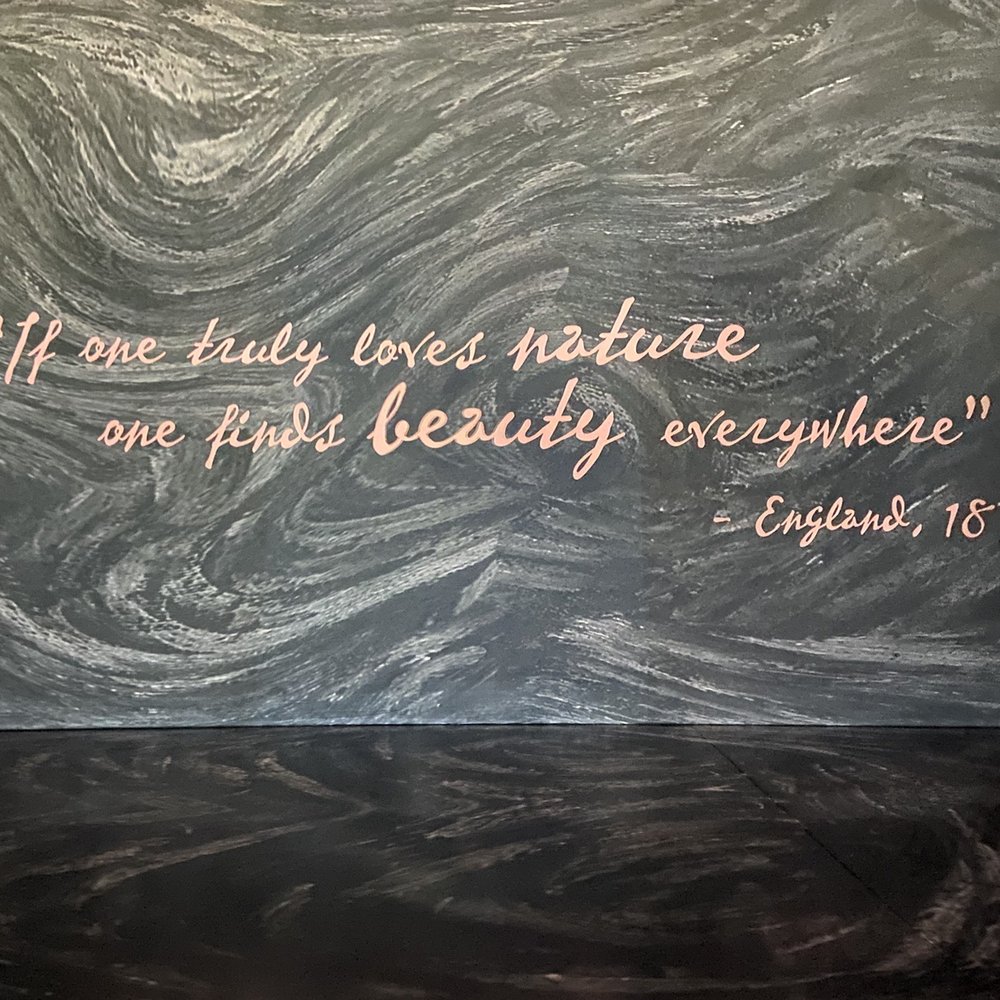 "If one truly loves nature
one finds beauty everywhere"
- England, 18